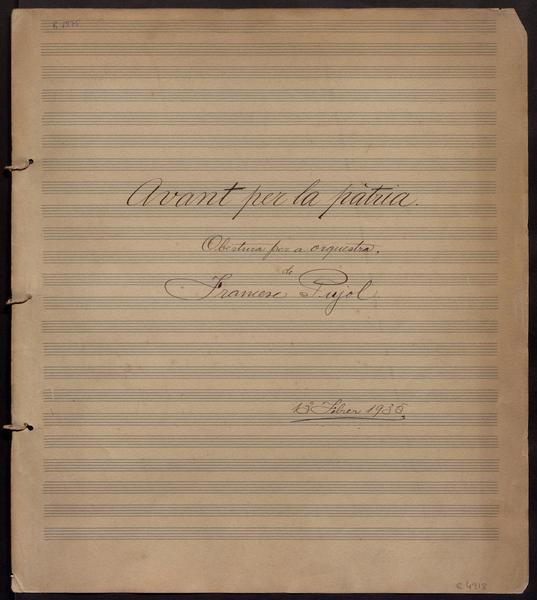 R 1975
Avant per la pàtria.
Obertura per a orquestra.
de
Francesc Pujol
Febrer 1936